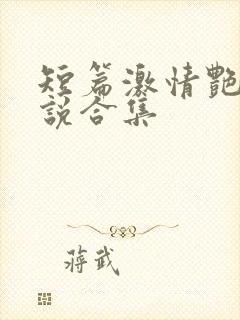 短篇激情艷
說合集
蔣武